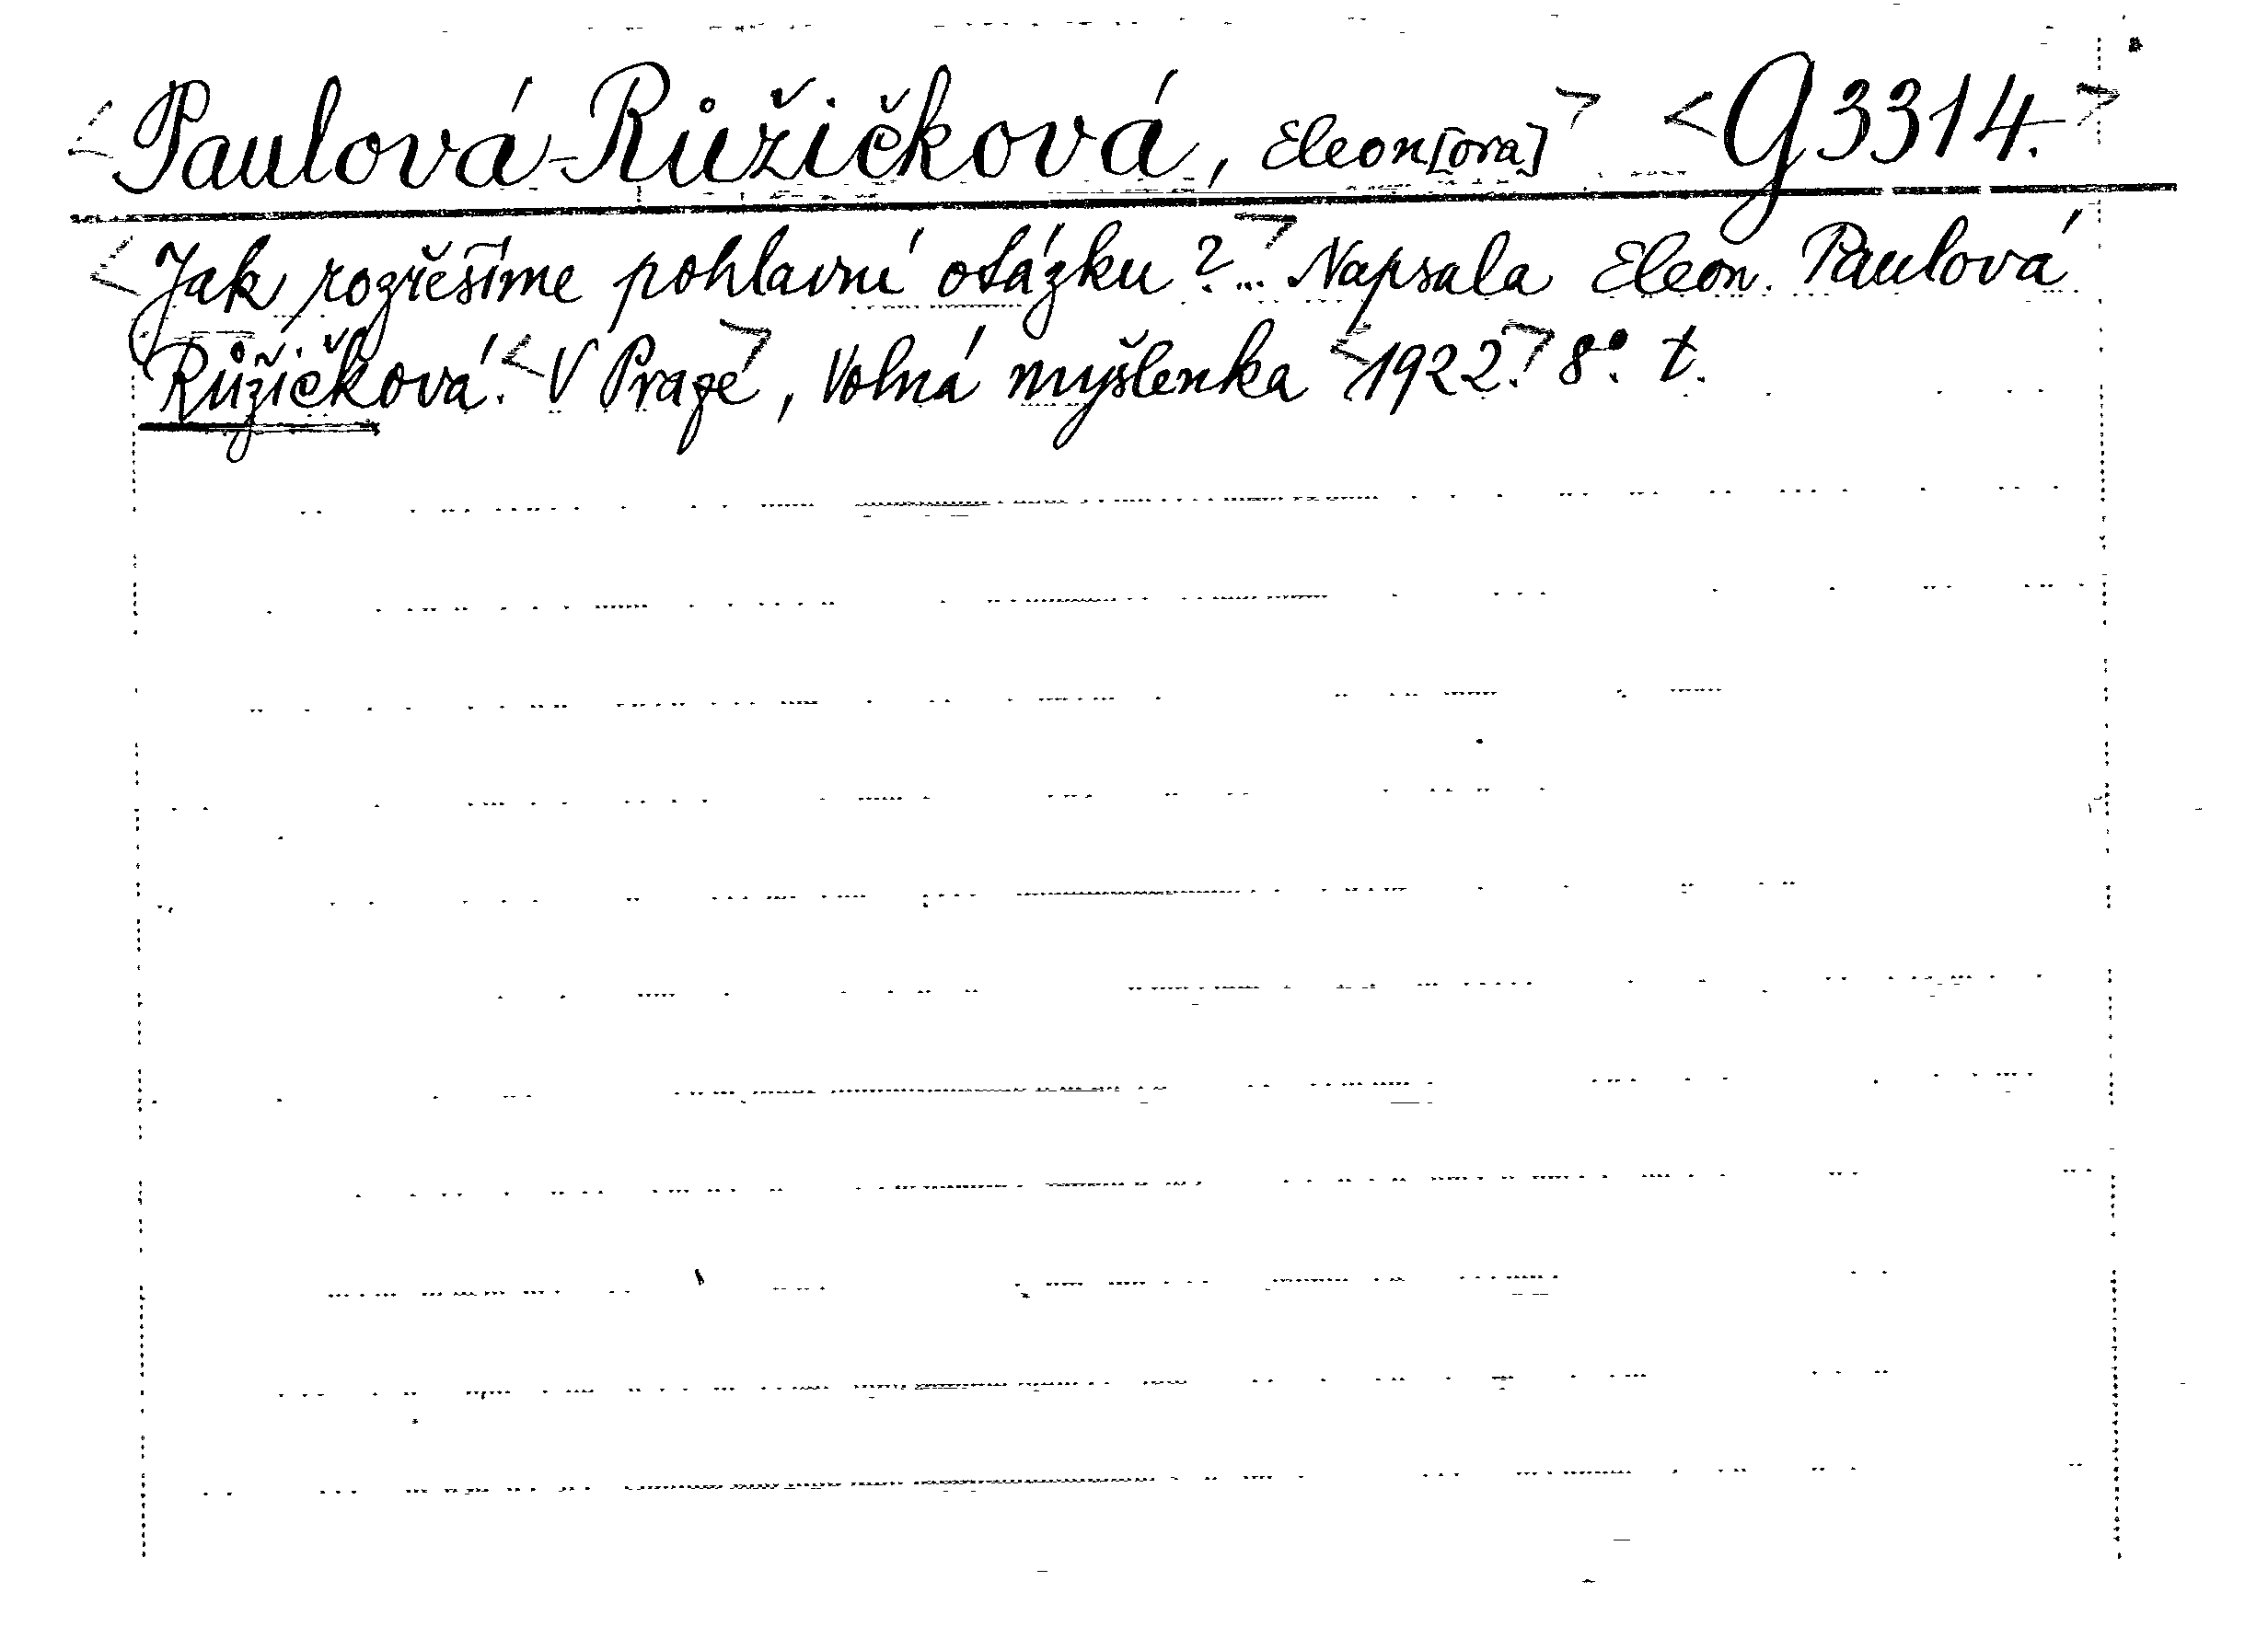 <Paulová-Růžičková, Eleon[ora]> <G 3314.>
<Jak rozřešíme pohlavní otázku?...> Napsala Eleon. Paulová
Růžičková. <V Praze>, Volná myšlenka <1922.> 8°. t.